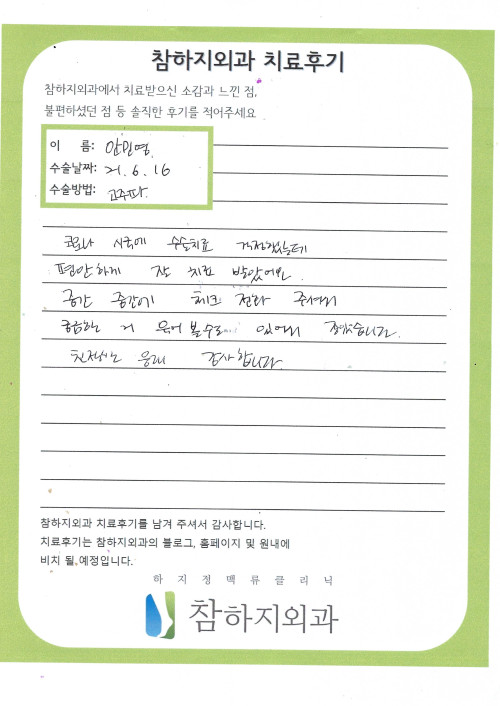 참하지외과 치료후기
참하지외과에서 치료받으신 소감과 느낀 점,
불편하셨던 점 등 솔직한 후기를 적어주세요
이 름: 안민영
수술날짜: 21. 6. 16
수술방법: 고주파.
코로나 시국에 수술치료 걱정했는데
편안하게 잘 치료 받았어요.
중간 중간에 체크 전화 주셔서
궁금한 거 물어 볼 수도 있어서 좋았습니다.
친절한 응대 감사합니다.
참하지외과 치료후기를 남겨 주셔서 감사합니다.
치료후기는 참하지외과의 블로그, 홈페이지 및 원내에
비치 될 예정입니다.
하지정맥류클리닉
참하지외과